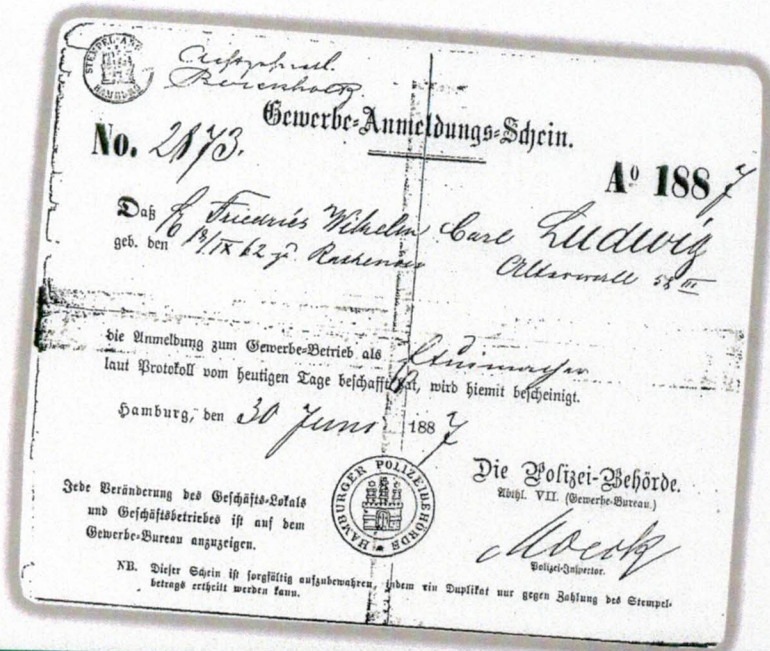 STEMPEL-AMT HAMBURG
Gewerbe-Anmeldungs-Schein.
No. 2873.
Aº 1887
Daß Friedrich Wilhelm Carl Ludwig
geb. den 18/IX 62 zu Rathenow Alterwall 58 III
die Anmeldung zum Gewerbe-Betrieb als Etuimacher
laut Protokoll vom heutigen Tage beschafft hat, wird hiemit bescheinigt.
Hamburg, den 30 Juni 1887
HAMBURGER POLIZEIBEHÖRDE
Die Polizei-Behörde.
Abthl. VII. (Gewerbe-Bureau.)
Polizei-Inspector.
Jede Veränderung des Geschäfts-Lokals
und Geschäftsbetriebes ist auf dem
Gewerbe-Bureau anzuzeigen.
NB. Dieser Schein ist sorgfältig aufzubewahren, indem ein Duplikat nur gegen Zahlung des Stempel-
betrags ertheilt werden kann.